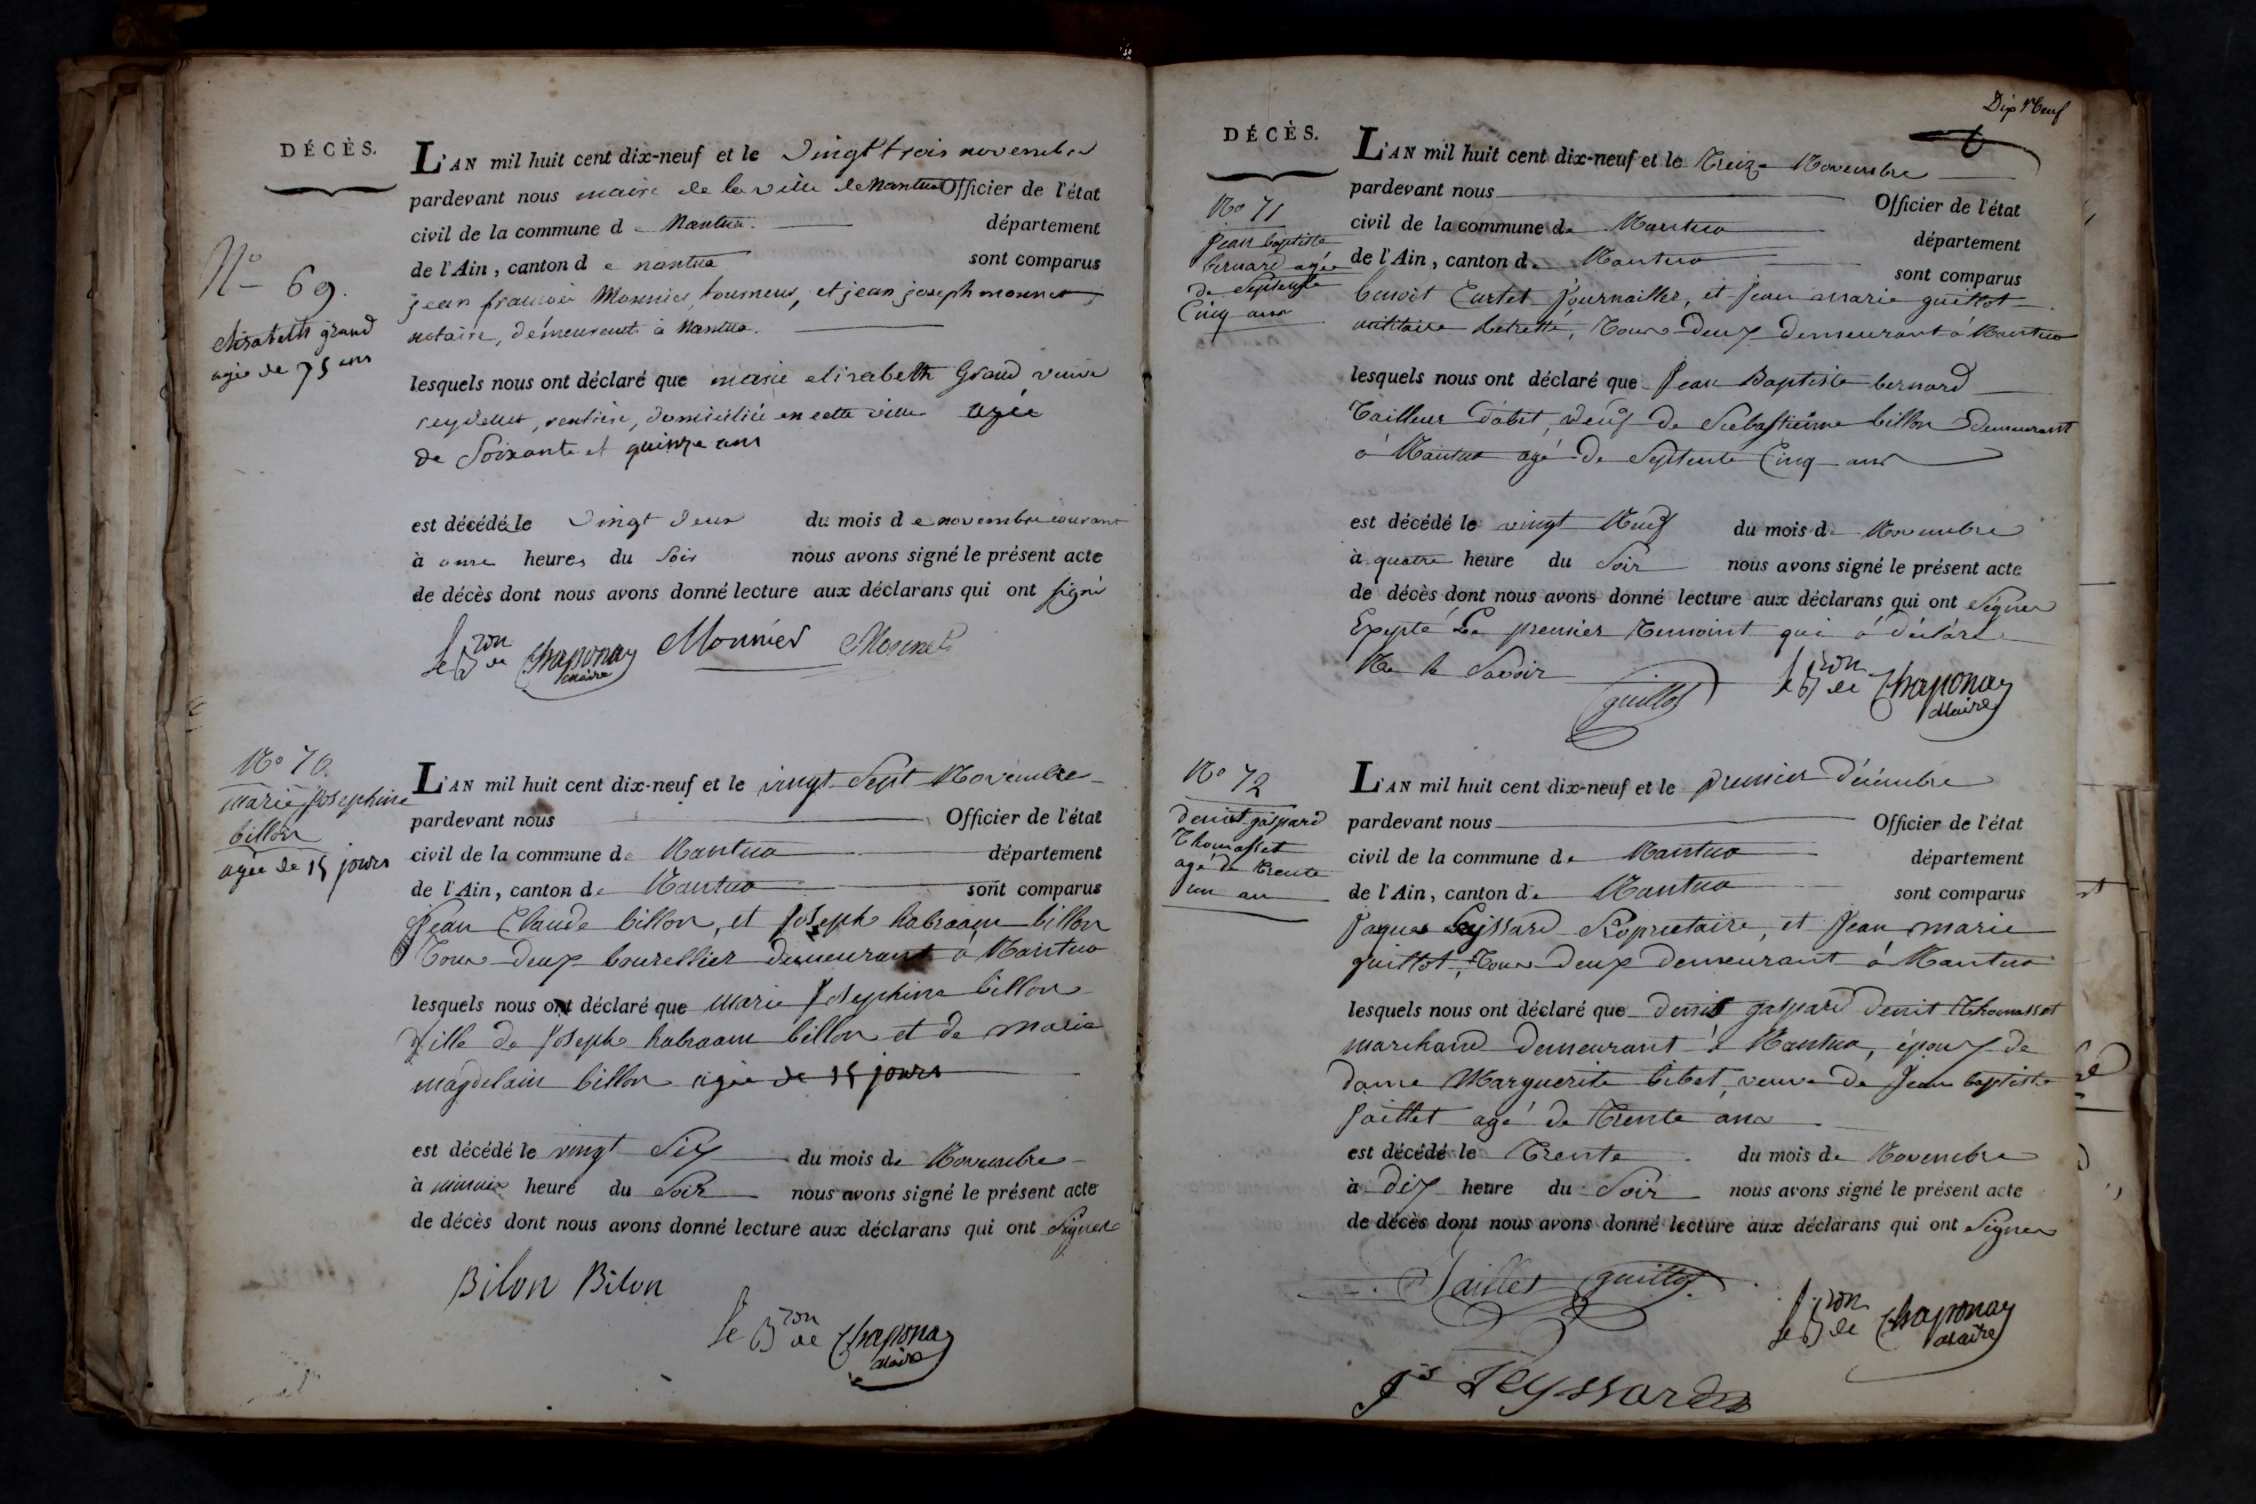 DÉCÈS.
L'AN mil huit cent dix-neuf et le vingt trois novembre
pardevant nous maire de la ville de nantua Officier de l'état
civil de la commune de Nantua. département
de l'Ain, canton de nantua sont comparus
jean françois Monnier, tourneur, et jean joseph monnet
notaire, demeurant à Nantua.
lesquels nous ont déclaré que marie elisabeth Grand veuve
reydellet, rentière, domiciliée en cette ville agée
de Soixante et quinze ans
est décédée le vingt deux du mois de novembre courant
à onze heures du soir nous avons signé le présent acte
de décès dont nous avons donné lecture aux déclarans qui ont signé
le Bron de Chaponay Monnier Monnet
maire
No 69.
elisabeth grand
agée de 75 ans
No 70.
marie josephine
billon
agée de 15 jours
L'AN mil huit cent dix-neuf et le vingt Sept Novembre
pardevant nous Officier de l'état
civil de la commune de Nantua département
de l'Ain, canton de Nantua sont comparus
Jean Claude billon, et Joseph habraam billon
Tous deux bourellier demeurant à Nantua
lesquels nous ont déclaré que marie Josephine billon
fille de Joseph habraam billon et de marie
magdelain billon agée de 15 jours
est décédé le vingt Six du mois de Novembre
à heure du Soir nous avons signé le présent acte
de décès dont nous avons donné lecture aux déclarans qui ont Signer
Bilon Bilon
le Bron de Chaponay
maire
Dix Neuf
DÉCÈS.
No 71
Jean baptiste
bernard agée
de Septente
Cinq ans
L'AN mil huit cent dix-neuf et le Treize Novembre
pardevant nous Officier de l'état
civil de la commune de Nantua département
de l'Ain, canton de Nantua sont comparus
benoit Curtet Journaillier, et Jean marie guillot
militaire Retretté, Tous deux demeurant à Nantua
lesquels nous ont déclaré que Jean Baptiste bernard
Tailleur d'abit, veuf de Sebastienne billon demeurant
à Nantua agé de Septente Cinq ans
est décédé le vingt Neuf du mois de Novembre
à quatre heure du Soir nous avons signé le présent acte
de décès dont nous avons donné lecture aux déclarans qui ont Signer
Exepté Le premier Temoint qui à déclaré
Ne le Savoir
guillot le Bron de Chaponay
Maire
No 72
denit gaspard
Thomasset
agé de Trente
un an
L'AN mil huit cent dix-neuf et le premier Décembre
pardevant nous Officier de l'état
civil de la commune de Nantua département
de l'Ain, canton de Nantua sont comparus
Jaques Leyssard Propriétaire, et Jean marie
guillot, Tous deux demeurant à Nantua
lesquels nous ont déclaré que denit gaspard denit Thomasset
marchand demeurant à Nantua, époux de
dame Marguerite bibet, veuve de Jean baptiste
Jaillet agé de Trente ans
est décédé le Trente du mois de Novembre
à dix heure du Soir nous avons signé le présent acte
de décès dont nous avons donné lecture aux déclarans qui ont Signer
Jaillet guillot
le Bron de Chaponay
Maire
Js Leyssard